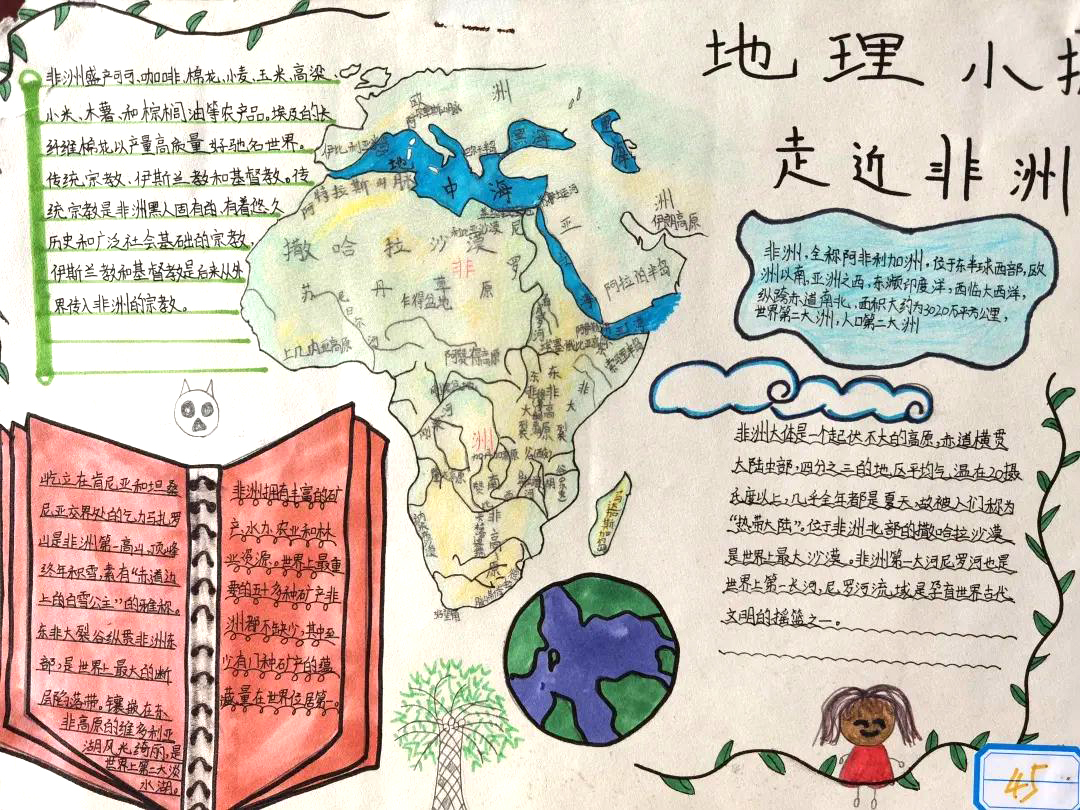 地理小
走近非洲
非洲盛产可可、咖啡、棉花、小麦、玉米、高粱、
小米、木薯、和棕榈油等农产品。埃及的长
纤维棉花以产量高质量好驰名世界。
传统宗教、伊斯兰教和基督教。传
统宗教是非洲黑人固有的、有着悠久
历史和广泛社会基础的宗教,
伊斯兰教和基督教是后来从外
界传入非洲的宗教。
非洲,全称阿非利加洲,位于东半球西部,欧
洲以南,亚洲之西,东濒印度洋,西临大西洋,
纵跨赤道南北,面积大约为3020万平方公里,
世界第二大洲,人口第二大洲
欧
洲
伊比利亚半岛
黑海
里海
地
中
海
阿特拉斯山脉
洲
伊朗高原
亚
撒哈拉沙漠
非
尼
罗
苏
丹
草
原
乍得盆地
尼日尔河
阿拉伯半岛
海
上几内亚高原
阿赞德高原
埃塞俄比亚高原
索马里半岛
东非大裂谷
东非高原
非
大
裂
河
洲
南
非
高
原
马达加斯加岛
好望角
非洲大体是一个起伏不大的高原,赤道横贯
大陆中部,四分之三的地区平均气温在20摄
氏度以上,几乎全年都是夏天,故被人们称为
“热带大陆”。位于非洲北部的撒哈拉沙漠
是世界上最大沙漠。非洲第一大河尼罗河也是
世界上第一长河,尼罗河流域是孕育世界古代
文明的摇篮之一。
屹立在肯尼亚和坦桑
尼亚交界处的乞力马扎罗
山是非洲第一高山,顶峰
终年积雪,素有“赤道边
上的白雪公主”的雅称。
东非大裂谷纵贯非洲东
部,是世界上最大的断
层陷落带。镶嵌在东
非高原的维多利亚
湖风光绮丽,是
世界上第二大淡
水湖。
非洲拥有丰富的矿
产、水力、农业和林
业资源。世界上最重
要的五十多种矿产非
洲都不缺少,其中至
少有17种矿产的蕴
藏量在世界位居第一。
45